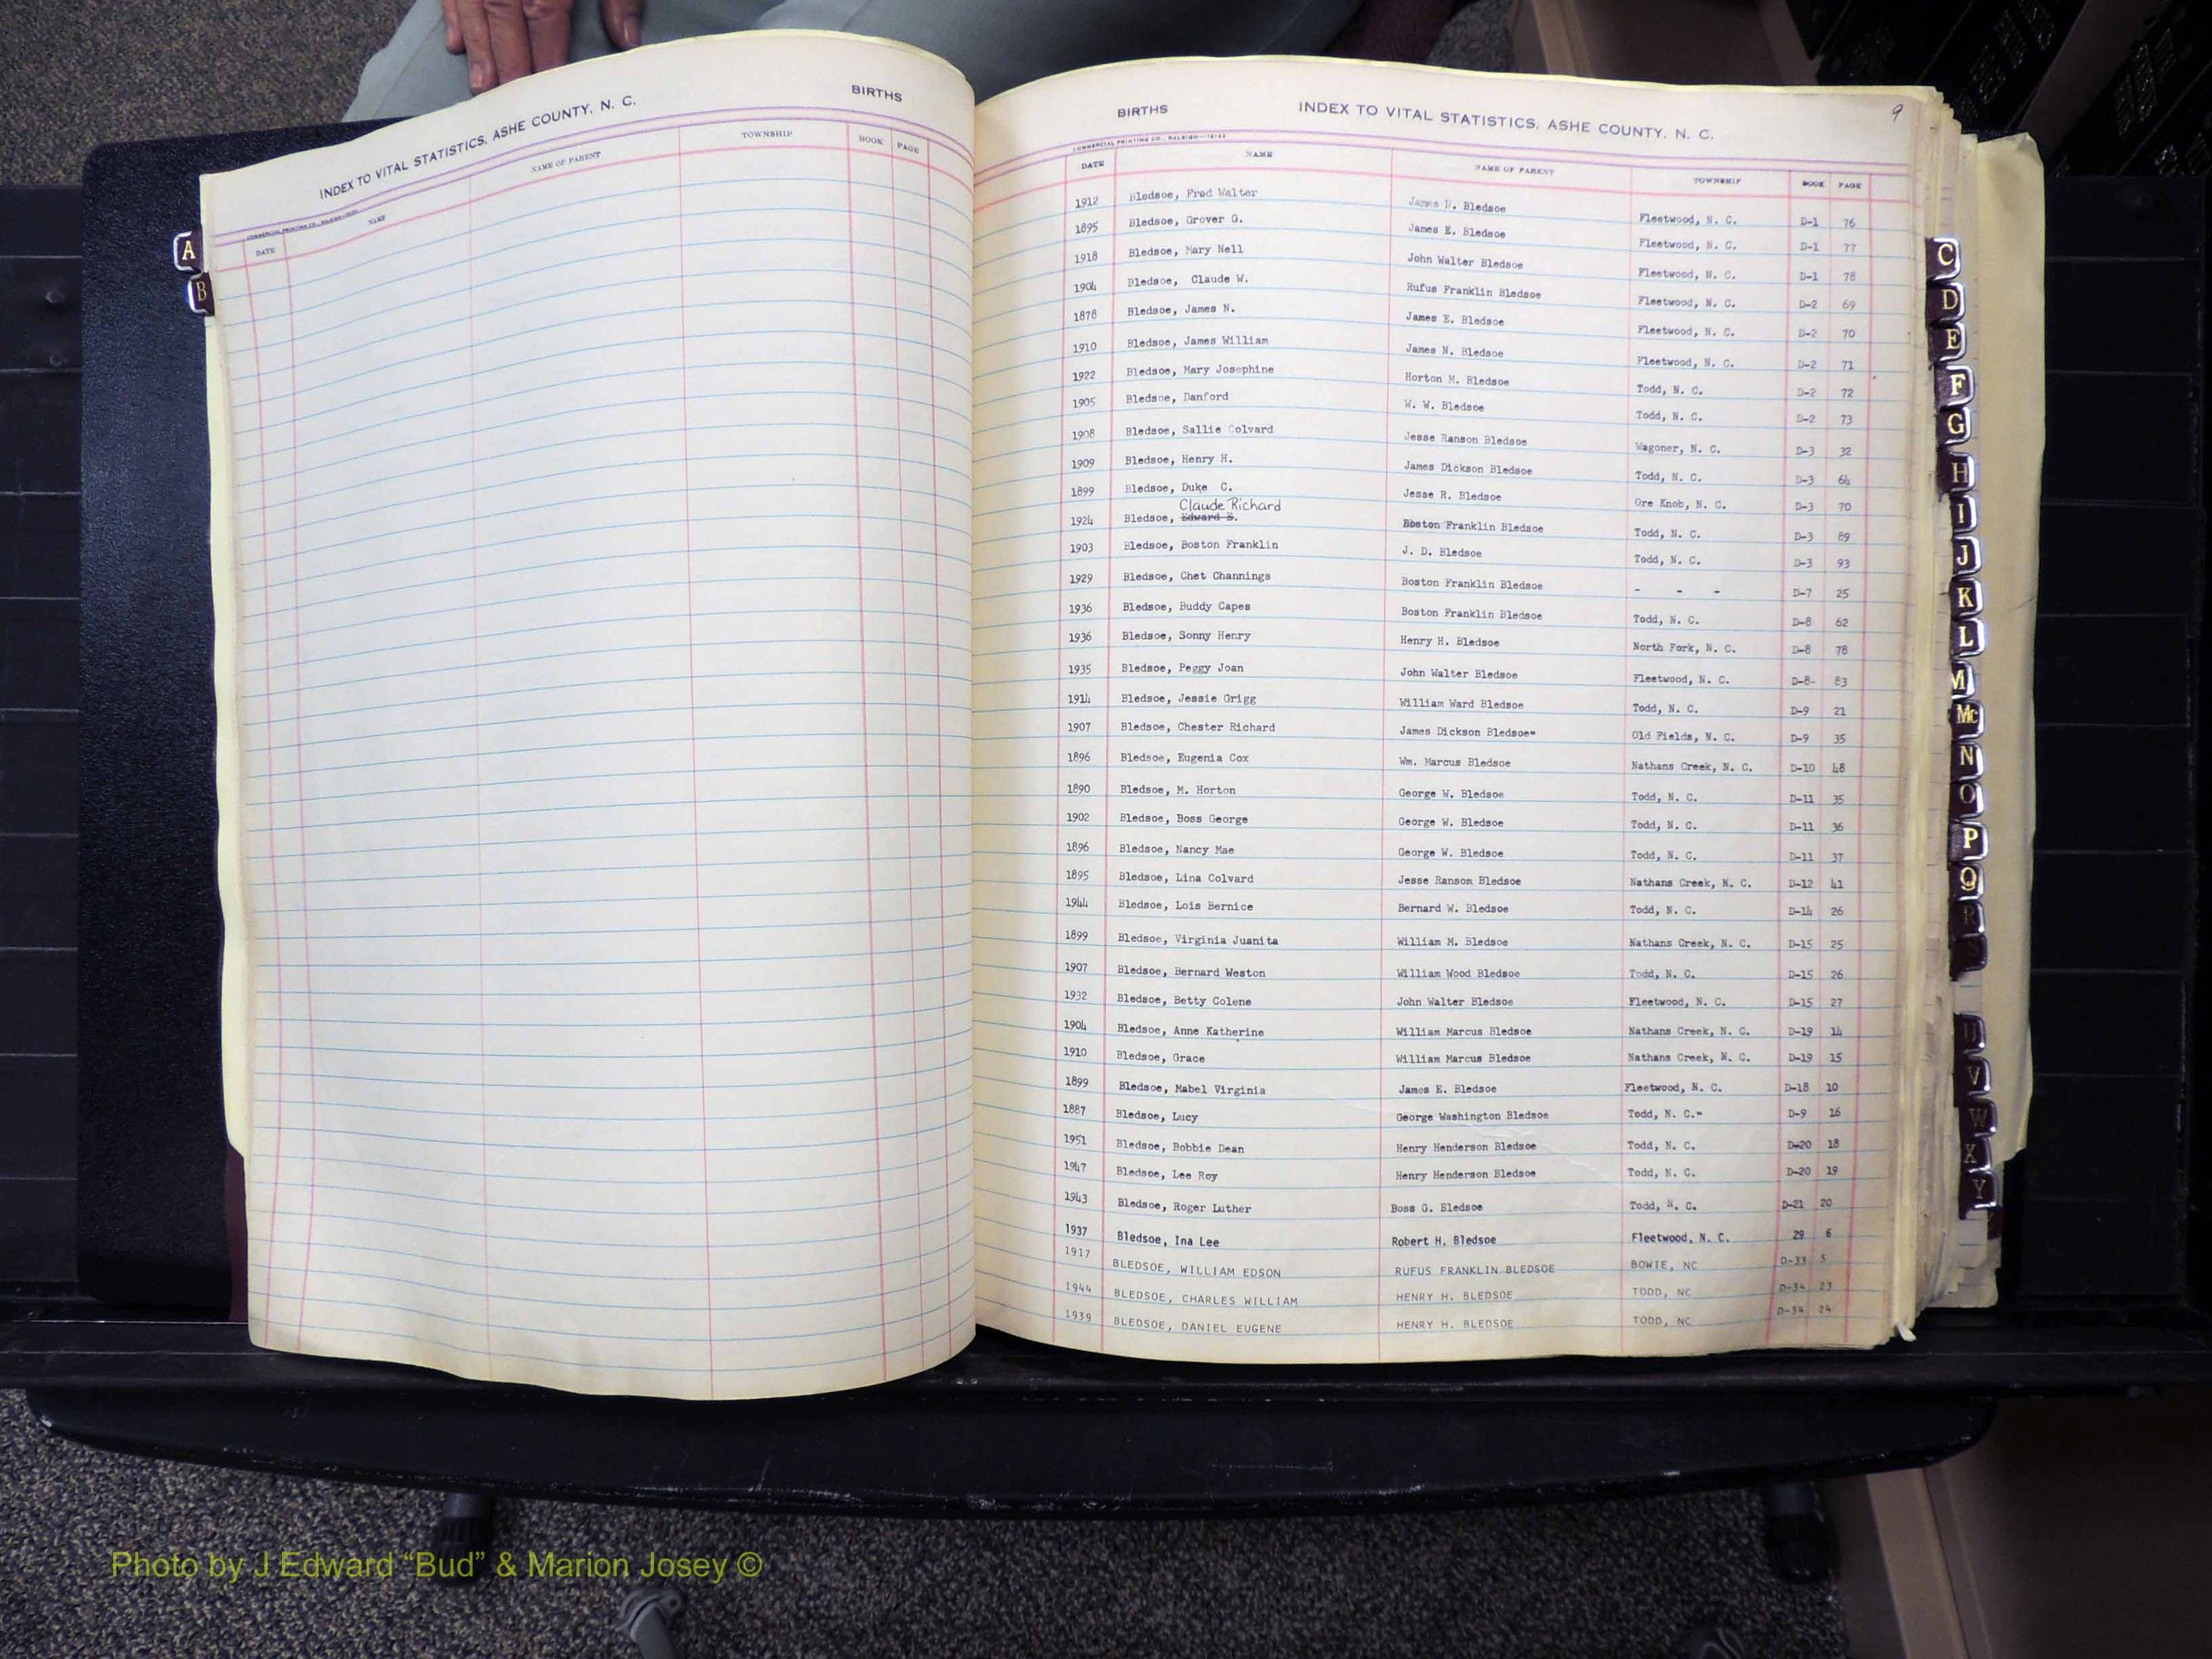 INDEX TO VITAL STATISTICS, ASHE COUNTY, N. C. BIRTHS
DATE NAME NAME OF PARENT TOWNSHIP BOOK PAGE
A
B
9
BIRTHS INDEX TO VITAL STATISTICS, ASHE COUNTY, N. C.
COMMERCIAL PRINTING CO., RALEIGH
DATE NAME NAME OF PARENT TOWNSHIP BOOK PAGE
1912 Bledsoe, Fred Walter James N. Bledsoe Fleetwood, N. C. D-1 76
1895 Bledsoe, Grover G. James E. Bledsoe Fleetwood, N. C. D-1 77
1918 Bledsoe, Mary Nell John Walter Bledsoe Fleetwood, N. C. D-1 78
1904 Bledsoe, Claude W. Rufus Franklin Bledsoe Fleetwood, N. C. D-2 69
1878 Bledsoe, James N. James E. Bledsoe Fleetwood, N. C. D-2 70
1910 Bledsoe, James William James N. Bledsoe Fleetwood, N. C. D-2 71
1922 Bledsoe, Mary Josephine Horton M. Bledsoe Todd, N. C. D-2 72
1905 Bledsoe, Danford W. W. Bledsoe Todd, N. C. D-2 73
1908 Bledsoe, Sallie Colvard Jesse Ranson Bledsoe Wagoner, N. C. D-3 32
1909 Bledsoe, Henry H. James Dickson Bledsoe Todd, N. C. D-3 64
1899 Bledsoe, Duke C. Jesse R. Bledsoe Ore Knob, N. C. D-3 70
Claude Richard
1924 Bledsoe, Edward B. Boston Franklin Bledsoe Todd, N. C. D-3 89
1903 Bledsoe, Boston Franklin J. D. Bledsoe Todd, N. C. D-3 93
1929 Bledsoe, Chet Channings Boston Franklin Bledsoe - - - D-7 25
1936 Bledsoe, Buddy Capes Boston Franklin Bledsoe Todd, N. C. D-8 62
1936 Bledsoe, Sonny Henry Henry H. Bledsoe North Fork, N. C. D-8 78
1935 Bledsoe, Peggy Joan John Walter Bledsoe Fleetwood, N. C. D-8- 83
1914 Bledsoe, Jessie Grigg William Ward Bledsoe Todd, N. C. D-9 21
1907 Bledsoe, Chester Richard James Dickson Bledsoe- Old Fields, N. C. D-9 35
1896 Bledsoe, Eugenia Cox Wm. Marcus Bledsoe Nathans Creek, N. C. D-10 48
1890 Bledsoe, M. Horton George W. Bledsoe Todd, N. C. D-11 35
1902 Bledsoe, Boss George George W. Bledsoe Todd, N. C. D-11 36
1896 Bledsoe, Nancy Mae George W. Bledsoe Todd, N. C. D-11 37
1895 Bledsoe, Lina Colvard Jesse Ransom Bledsoe Nathans Creek, N. C. D-12 41
1944 Bledsoe, Lois Bernice Bernard W. Bledsoe Todd, N. C. D-14 26
1899 Bledsoe, Virginia Juanita William M. Bledsoe Nathans Creek, N. C. D-15 25
1907 Bledsoe, Bernard Weston William Wood Bledsoe Todd, N. C. D-15 26
1932 Bledsoe, Betty Colene John Walter Bledsoe Fleetwood, N. C. D-15 27
1904 Bledsoe, Anne Katherine William Marcus Bledsoe Nathans Creek, N. C. D-19 14
1910 Bledsoe, Grace William Marcus Bledsoe Nathans Creek, N. C. D-19 15
1899 Bledsoe, Mabel Virginia James E. Bledsoe Fleetwood, N. C. D-18 10
1887 Bledsoe, Lucy George Washington Bledsoe Todd, N. C.- D-9 16
1951 Bledsoe, Bobbie Dean Henry Henderson Bledsoe Todd, N. C. D-20 18
1947 Bledsoe, Lee Roy Henry Henderson Bledsoe Todd, N. C. D-20 19
1943 Bledsoe, Roger Luther Boss G. Bledsoe Todd, N. C. D-21 20
1937 Bledsoe, Ina Lee Robert H. Bledsoe Fleetwood, N. C. 29 6
1917 BLEDSOE, WILLIAM EDSON RUFUS FRANKLIN BLEDSOE BOWIE, NC D-33 5
1944 BLEDSOE, CHARLES WILLIAM HENRY H. BLEDSOE TODD, NC D-34 23
1939 BLEDSOE, DANIEL EUGENE HENRY H. BLEDSOE TODD, NC D-34 24
C
D
E
F
G
H
I
J
K
L
M
Mc
N
O
P
Q
R
U
V
W
X
Y
Photo by J Edward “Bud” & Marion Josey ©